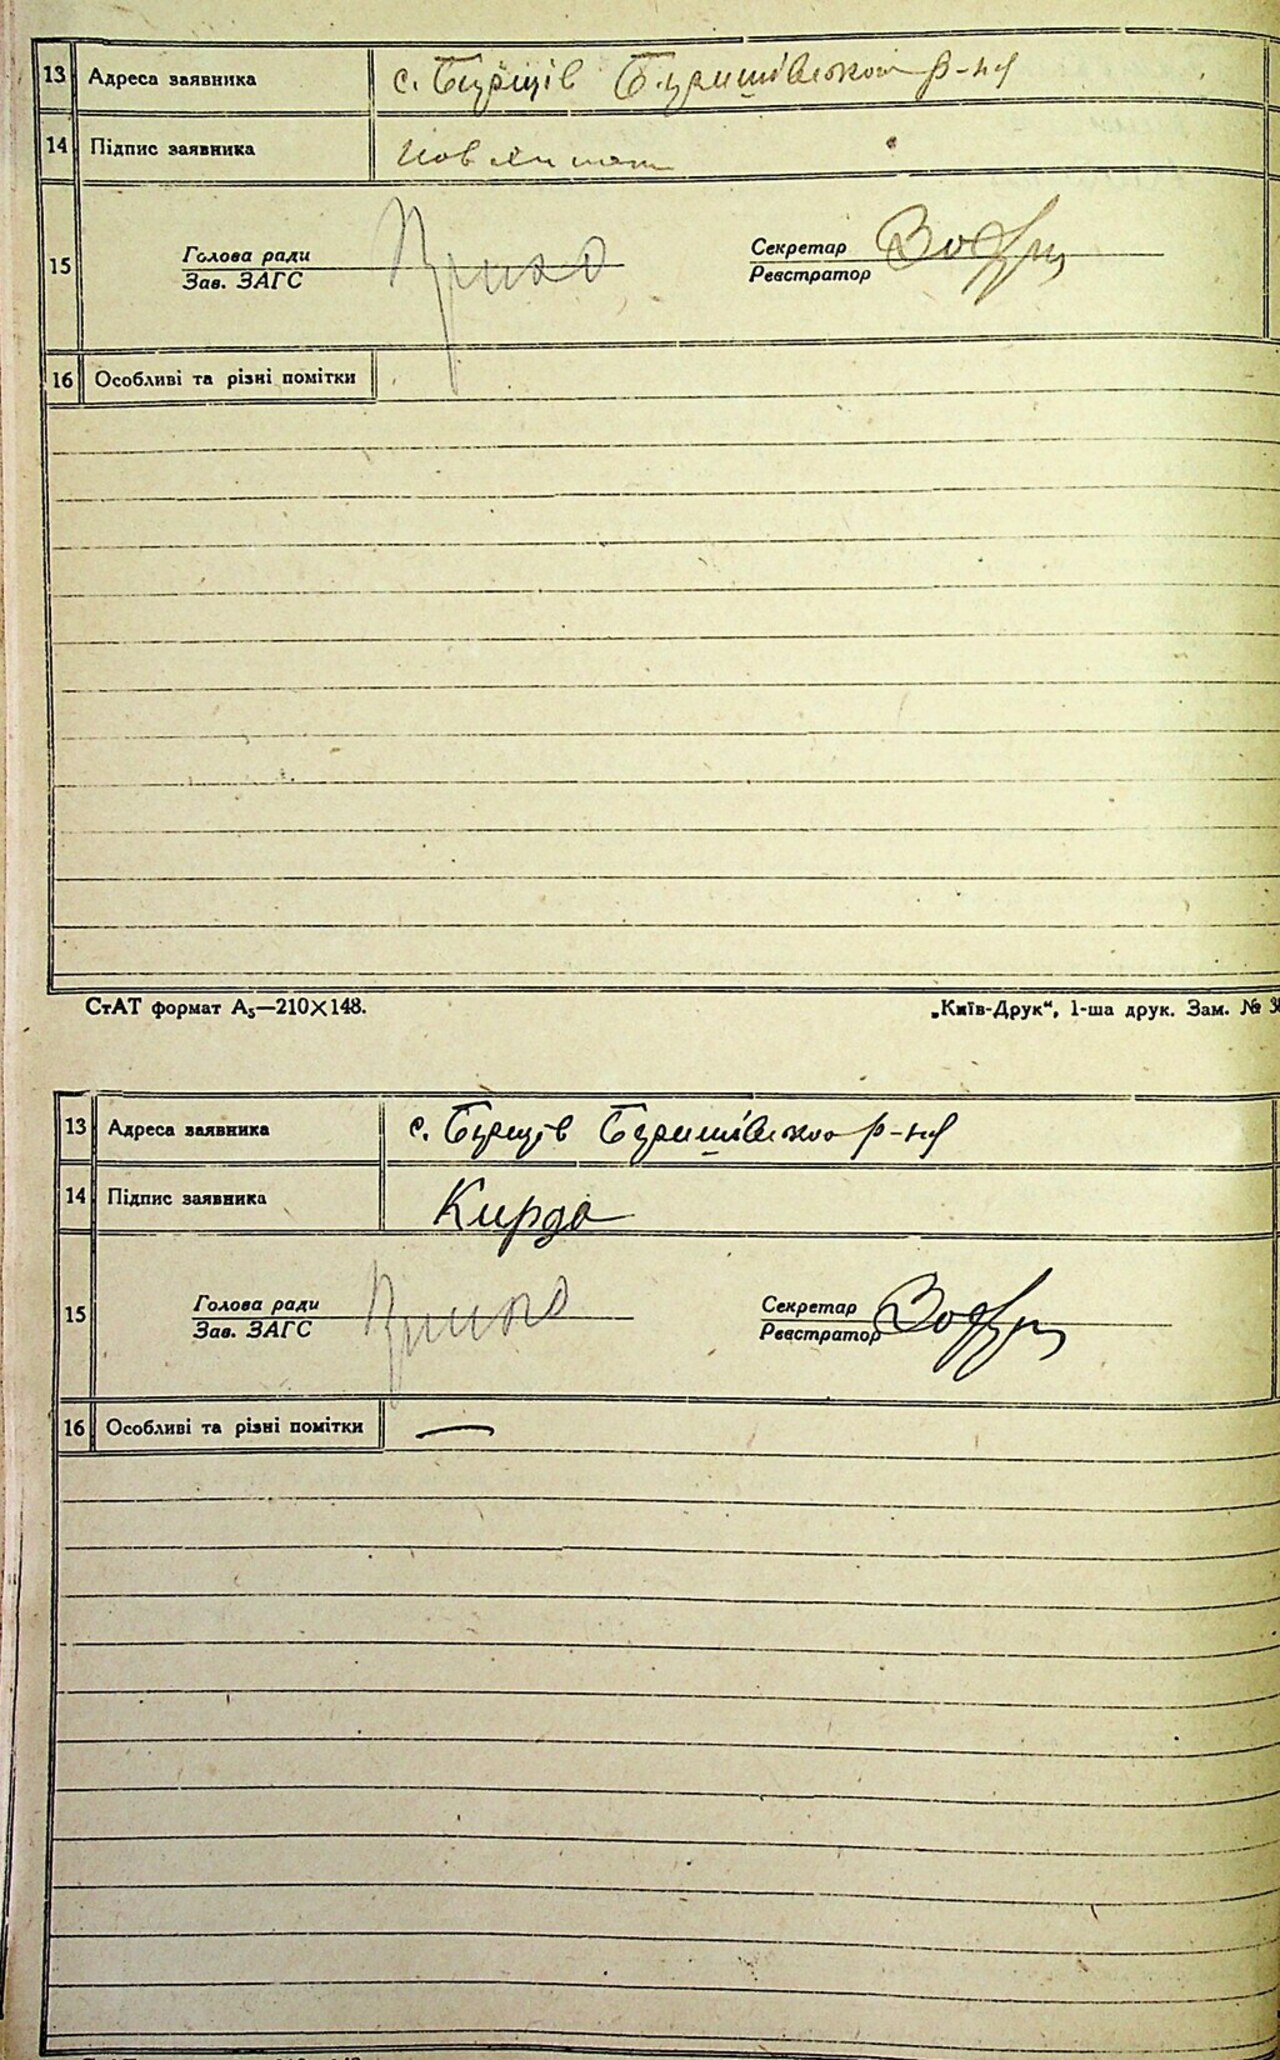 13 Адреса заявника с. Борщів Баришівського р-ну
14 Підпис заявника
15 Голова ради Секретар
Зав. ЗАГС Реєстратор
16 Особливі та різні помітки
СтАТ формат А₅—210×148. „Київ-Друк“, 1-ша друк. Зам. №
13 Адреса заявника с. Борщів Баришівського р-ну
14 Підпис заявника Кирда
15 Голова ради Секретар
Зав. ЗАГС Реєстратор
16 Особливі та різні помітки —